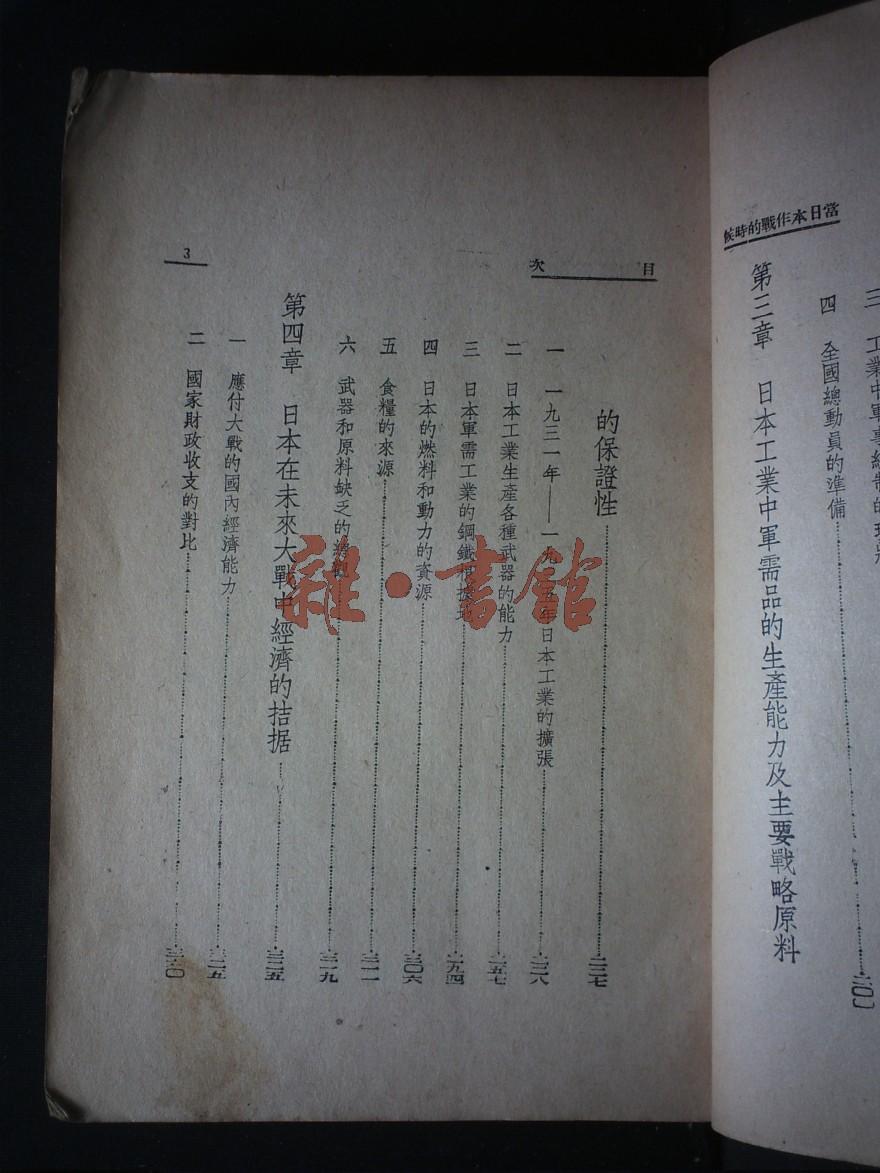 當日本作戰的時候
四 全國總動員的準備
第三章 日本工業中軍需品的生產能力及主要戰略原料
目次
的保證性
一 一九三一年——一九三五年日本工業的擴張
二 日本工業生產各種武器的能力 二五七
三 日本軍需工業的鋼鐵根據地 二九四
四 日本的燃料和動力的資源 三〇六
五 食糧的來源 三一一
六 武器和原料缺乏的總觀 三一九
第四章 日本在未來大戰中經濟的拮据 三二五
一 應付大戰的國內經濟能力 三二五
二 國家財政收支的對比 三三〇
3
雜·書館